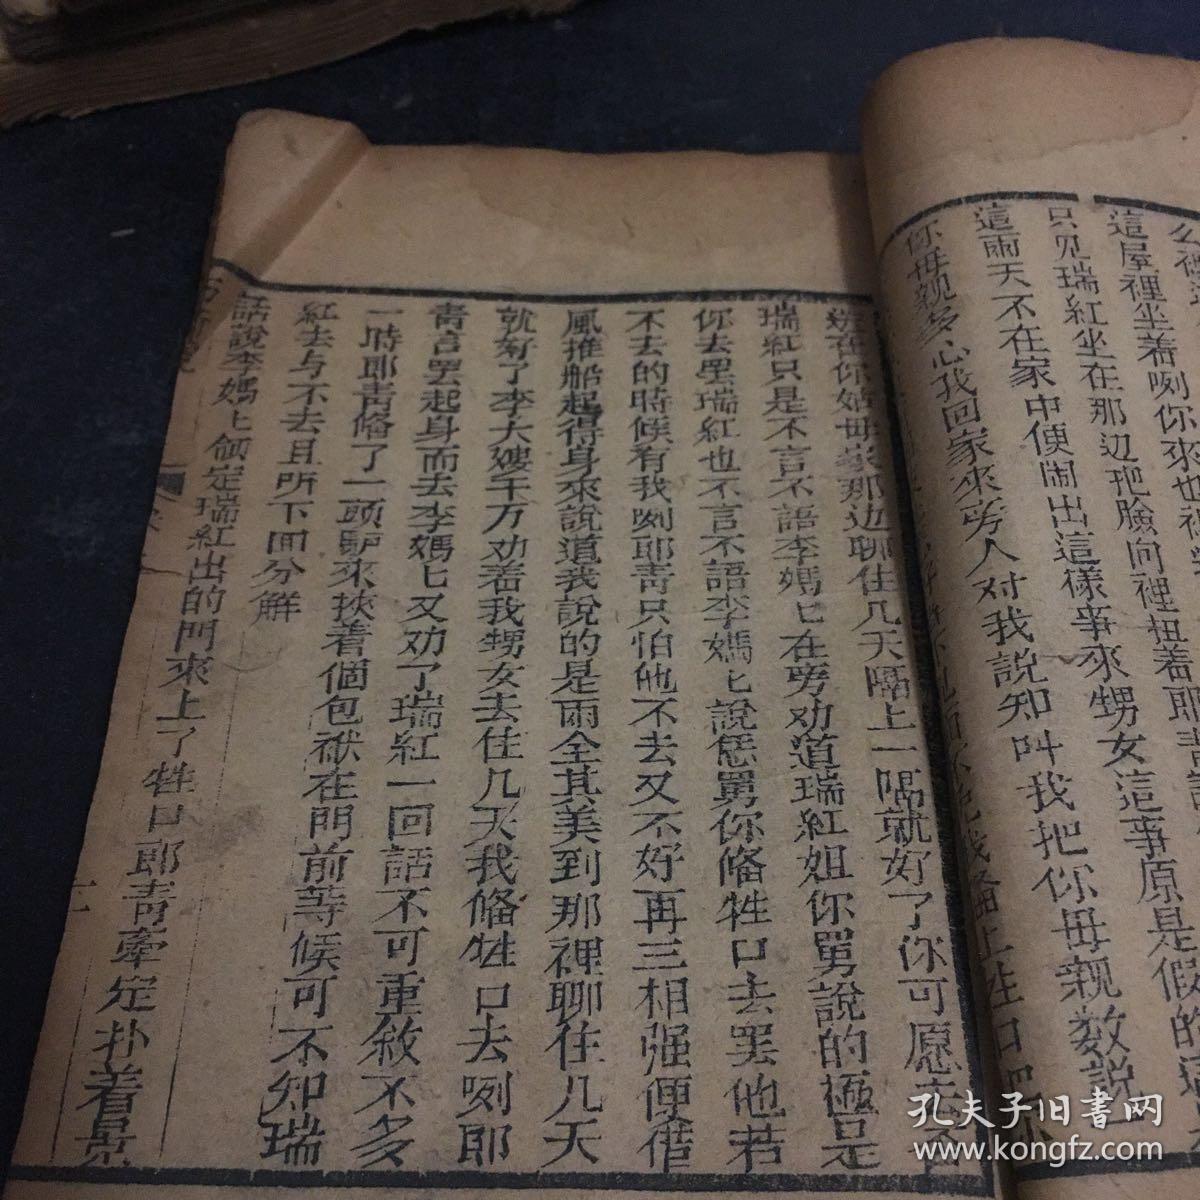 這屋裡坐着咧你來也
只見瑞紅坐在那边把臉向裡扭着耶青
這兩天不在家中便鬧出這樣事來甥女這事原是假的
你毋親多心我回家來旁人对我說知叫我把你毋親数說
在你姑毋家那边聊住几天隔上一隔就好了你可愿去否
瑞紅只是不言不語李媽匕在旁劝道瑞紅姐你舅說的極是
你去罢瑞紅也不言不語李媽匕說恁舅你偹牲口去罢他若
不去的時候有我咧耶青只怕他不去又不好再三相强便借
風推船起得身來說道我說的是兩全其美到那裡聊住几天
就好了李大嫂千万劝着我甥女去住几天我偹牲口去咧耶
青言罢起身而去李媽匕又劝了瑞紅一回話不可重敘不多
一時耶青偹了一頭馿來挾着個包袱在門前等候可不知瑞
紅去与不去且听下回分解
話說李媽匕領定瑞紅出的門來上了牲口耶青牽定扑着景
十
孔夫子旧書网
www.kongfz.com